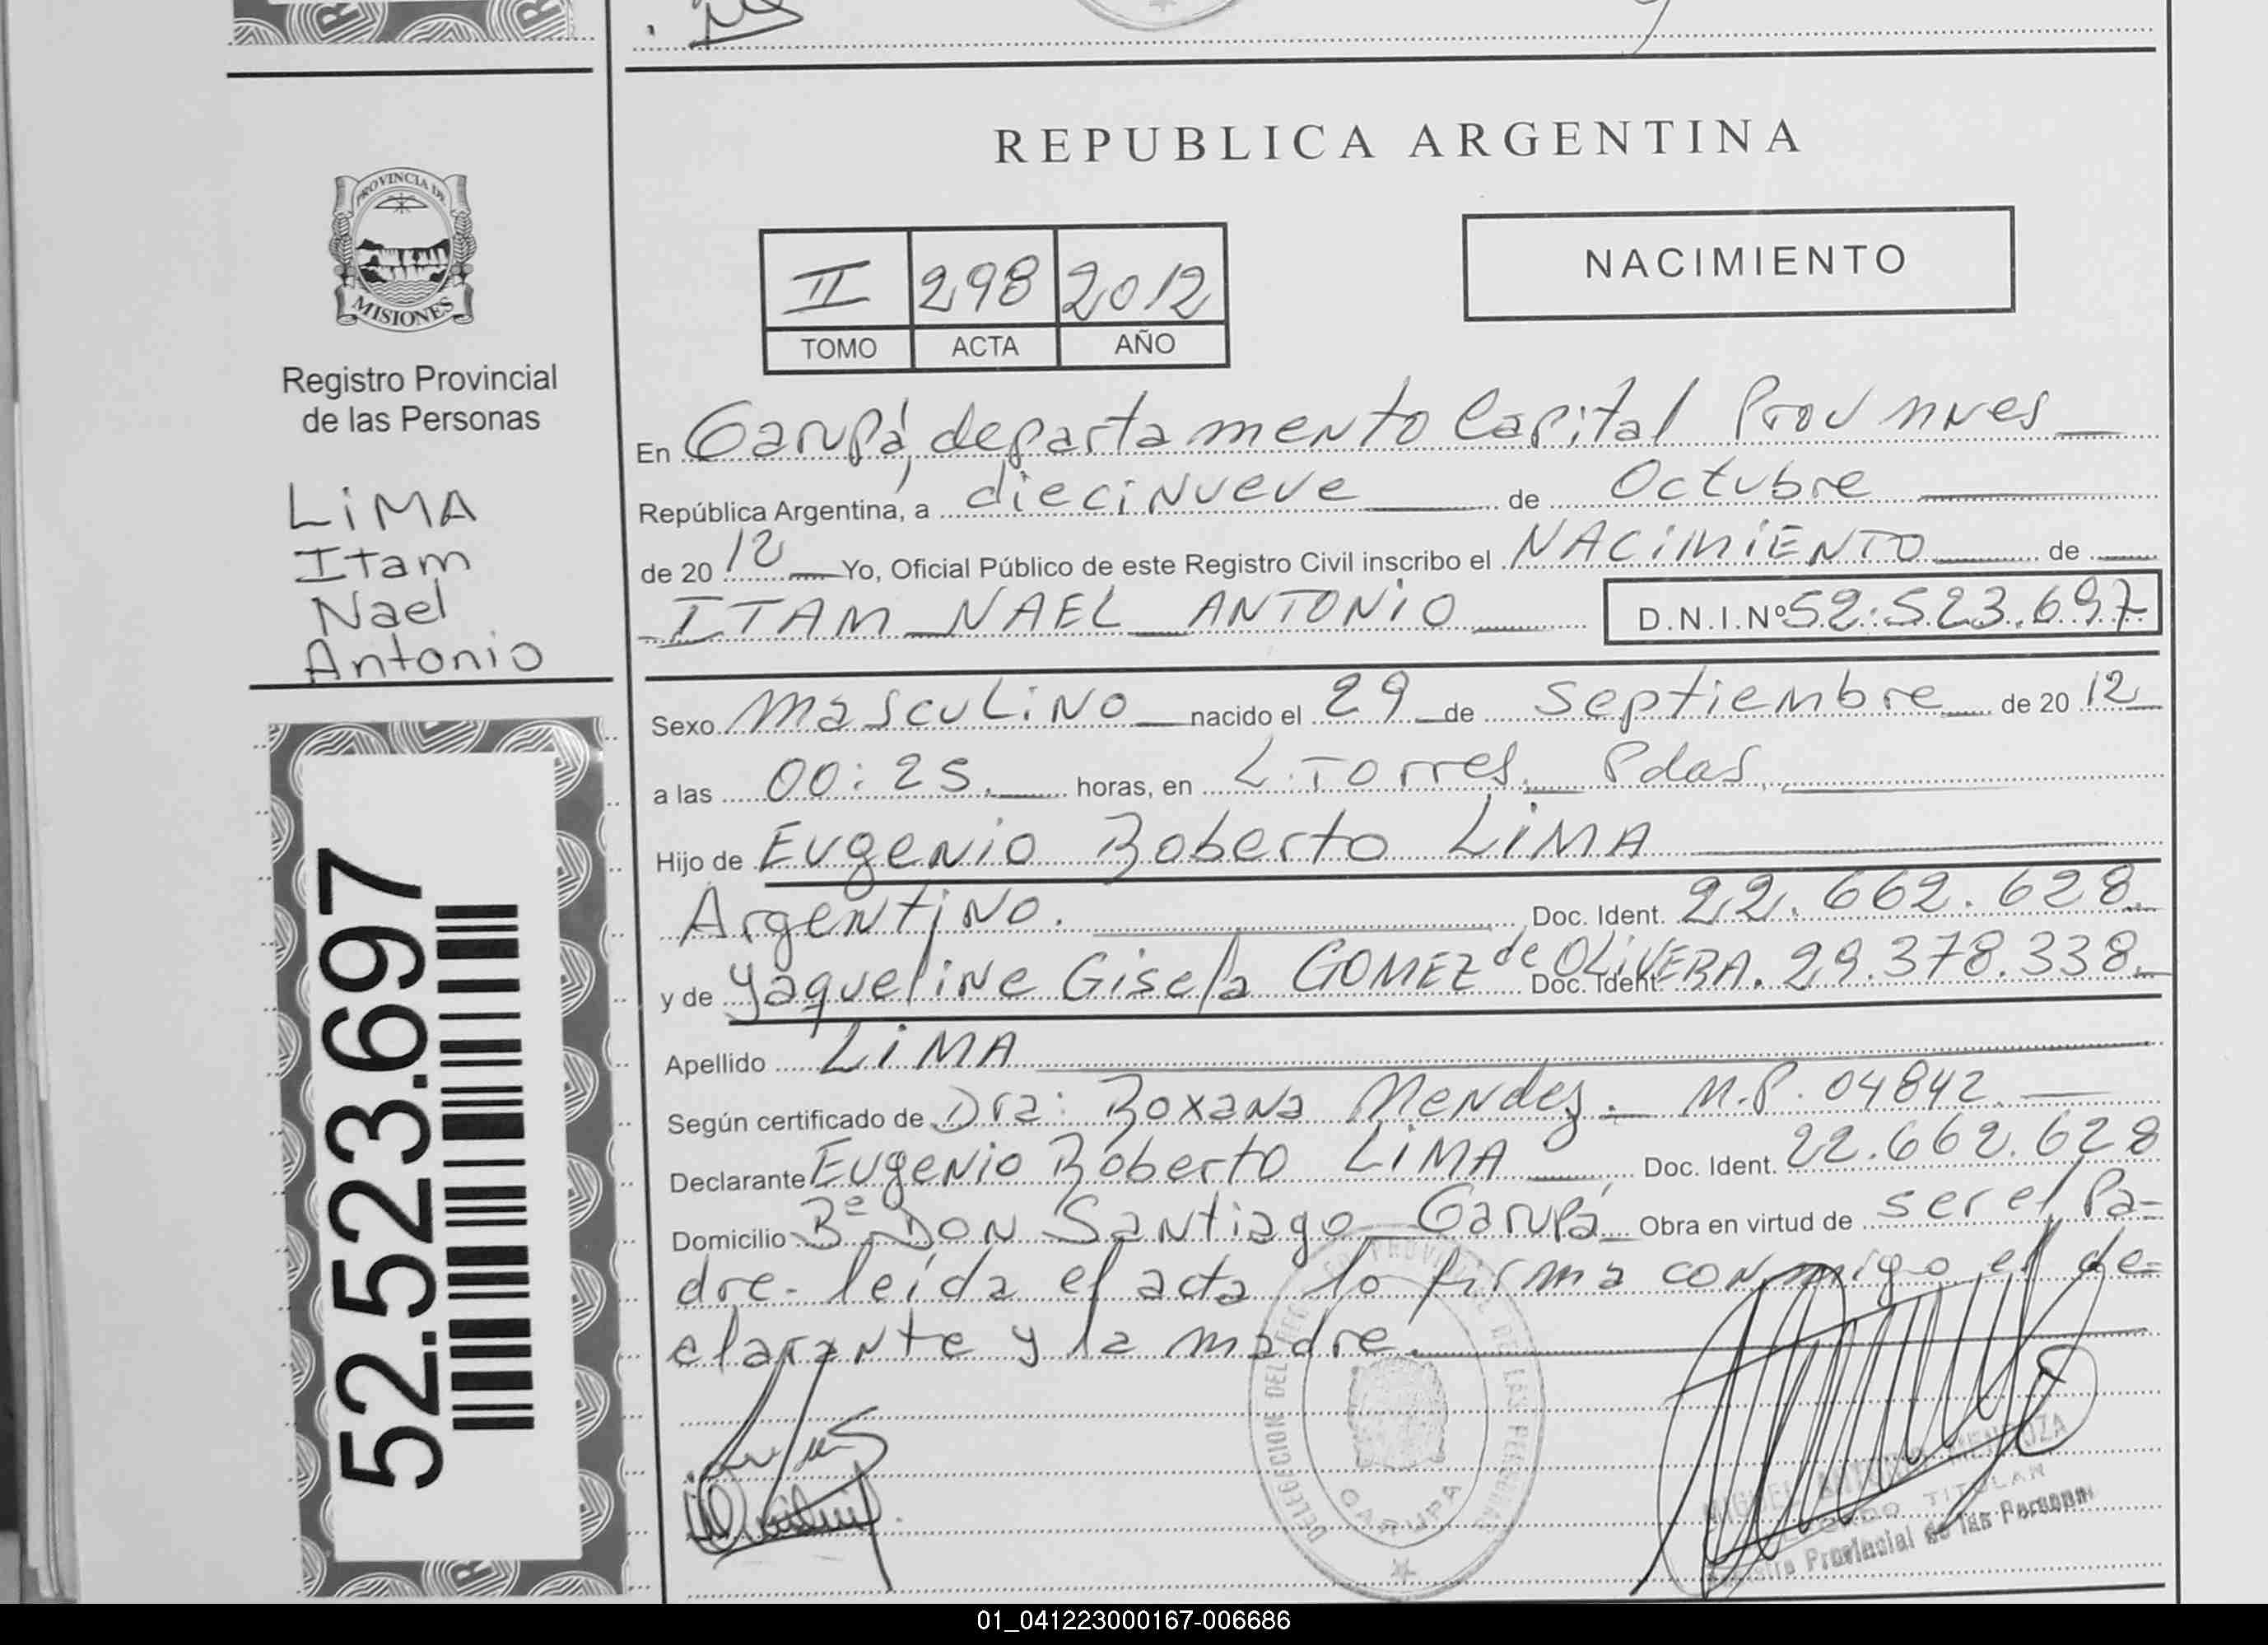 REPUBLICA ARGENTINA
PROVINCIA DE
MISIONES
Registro Provincial
de las Personas
LiMA
Itam
Nael
Antonio
52.523.697
II 298 2012
TOMO ACTA AÑO
NACIMIENTO
En Garupá, departamento Capital Prov Mnes
República Argentina, a diecinueve de Octubre
de 20 12 Yo, Oficial Público de este Registro Civil inscribo el NACiMiENTO de
ITAM NAEL ANTONiO D.N.I.Nº 52.523.697
Sexo Masculino nacido el 29 de Septiembre de 20 12
a las 00:25. horas, en L. Torres. Pdas
Hijo de Eugenio Roberto LiMA
Argentino. Doc. Ident. 22.662.628.
y de Yaqueline Gisela GOMEZ de OLiVERA. Doc. Ident. 29.378.338.
Apellido LiMA
Según certificado de Dra: Roxana Mendez. M.P. 04842.
Declarante Eugenio Roberto LiMA Doc. Ident. 22.662.628
Domicilio Bº Don Santiago Garupá Obra en virtud de ser el Pa=
dre. leída el acta lo firma conmigo el de=
clarante y la madre.
DELEGACION DEL REG. PROVINCIAL DE LAS PERSONAS
GARUPA
MIGUEL ANTONIO
TITULAR
Provincial de las Personas
01_041223000167-006686